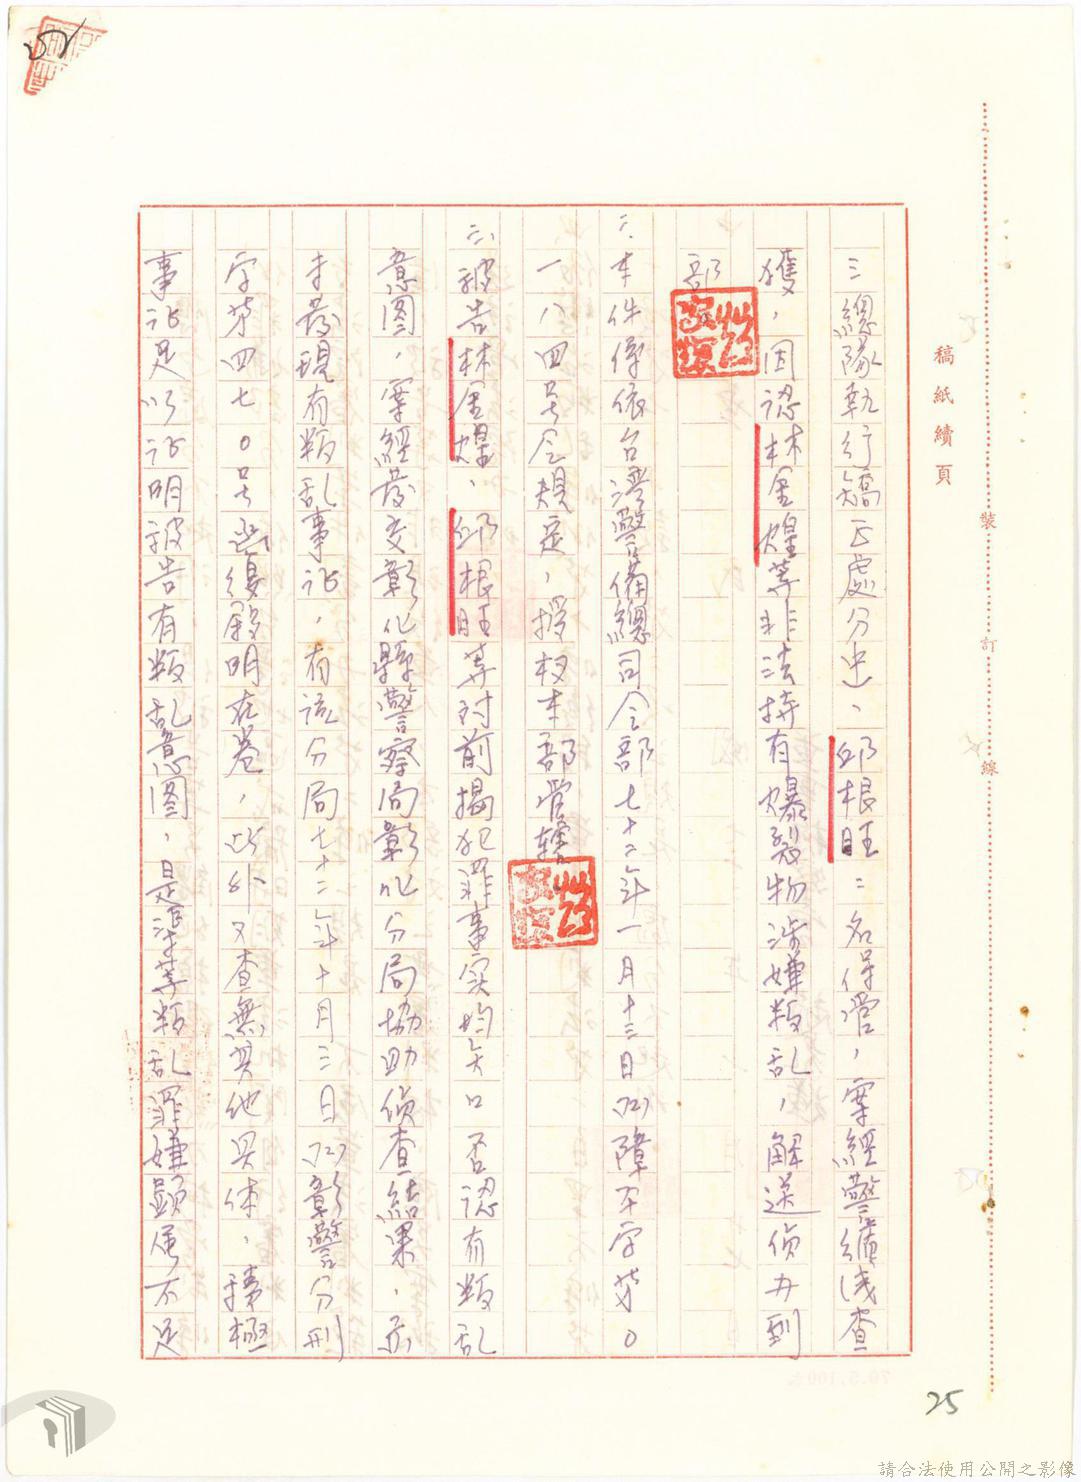 稿紙續頁
裝
訂
線
三總隊執行矯正處分中)、邱根旺二名保管,案經警續後查
獲,因認林金煌等非法持有爆裂物涉嫌叛乱,解送偵办到
部。
二、本件係依台湾警備總司令部七十二年一月十三日(72)障平字第0
一八四号令規定,授权本部管轄。
三、被告林金煌、邱根旺等对前揭犯罪事实均矢口否認有叛乱
意图,案經发交彰化縣警察局彰化分局協助偵查結果,亦
未发現有叛乱事証,有該分局七十二年十月三日(72)彰警分刑
字第四七0号函復敘明在卷,此外又查無其他具体、積極
事証足以証明被告有叛乱意图,是渠等叛乱罪嫌顯属不足
25
請合法使用公開之影像